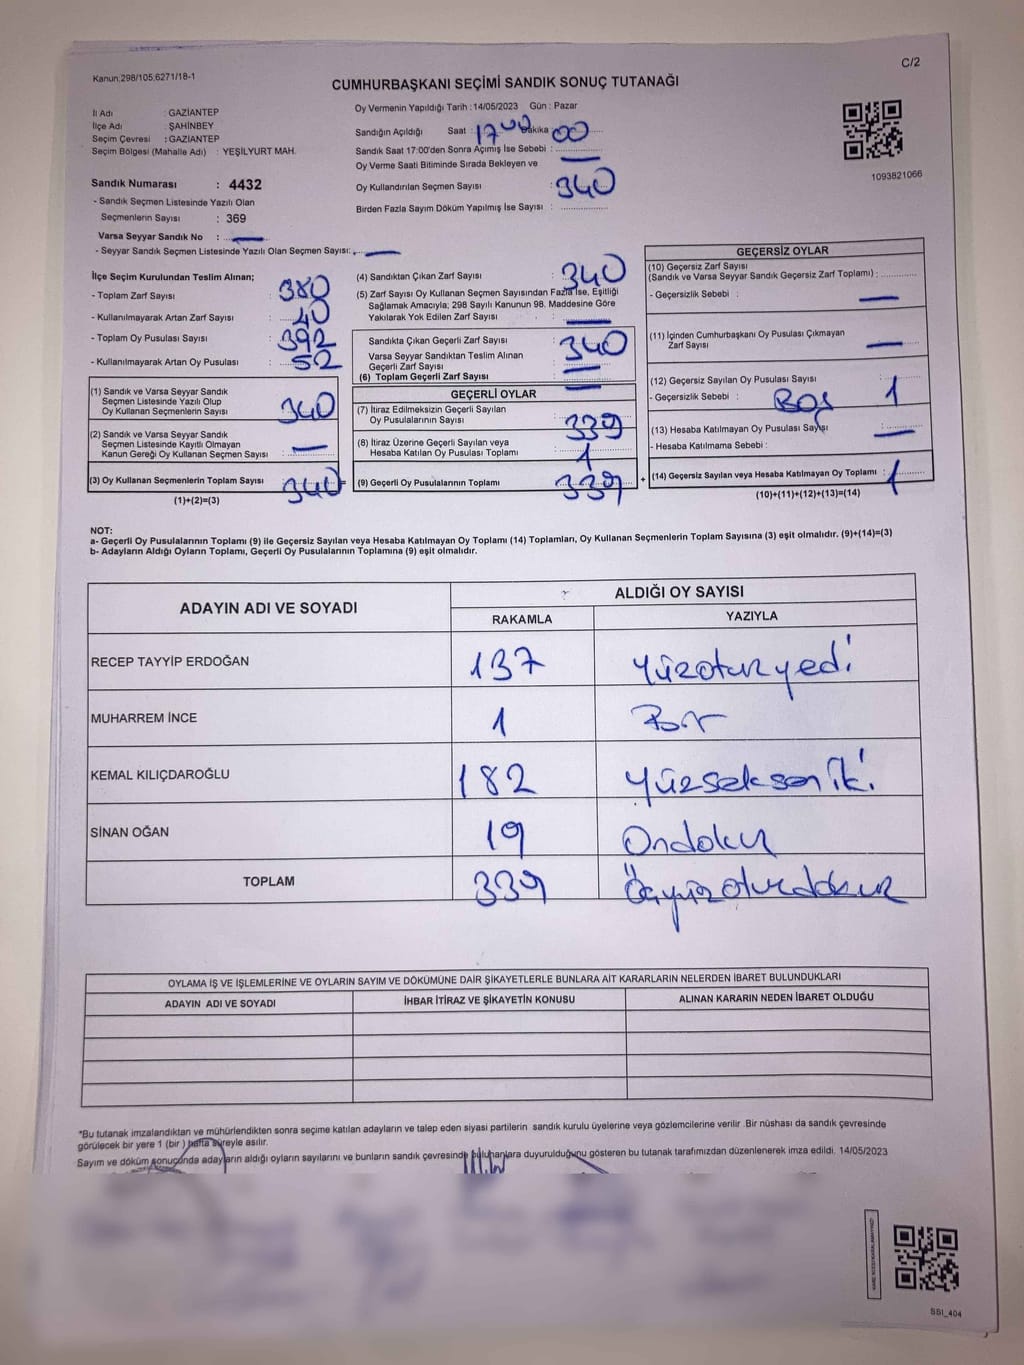 Kanun:298/105;6271/18-1
C/2
CUMHURBAŞKANI SEÇİMİ SANDIK SONUÇ TUTANAĞI
İl Adı : GAZİANTEP
İlçe Adı : ŞAHİNBEY
Seçim Çevresi : GAZİANTEP
Seçim Bölgesi (Mahalle Adı) : YEŞİLYURT MAH.
Sandık Numarası : 4432
- Sandık Seçmen Listesinde Yazılı Olan
Seçmenlerin Sayısı : 369
Varsa Seyyar Sandık No :
- Seyyar Sandık Seçmen Listesinde Yazılı Olan Seçmen Sayısı:
Oy Vermenin Yapıldığı Tarih :14/05/2023 Gün : Pazar
Sandığın Açıldığı Saat : 17 00 Dakika 00
Sandık Saat 17:00'den Sonra Açılmış İse Sebebi :
Oy Verme Saati Bitiminde Sırada Bekleyen ve
Oy Kullandırılan Seçmen Sayısı : 340
Birden Fazla Sayım Döküm Yapılmış İse Sayısı :
1093821066
İlçe Seçim Kurulundan Teslim Alınan;
- Toplam Zarf Sayısı : 380
- Kullanılmayarak Artan Zarf Sayısı : 40
- Toplam Oy Pusulası Sayısı : 392
- Kullanılmayarak Artan Oy Pusulası : 52
(1) Sandık ve Varsa Seyyar Sandık
Seçmen Listesinde Yazılı Olup
Oy Kullanan Seçmenlerin Sayısı : 340
(2) Sandık ve Varsa Seyyar Sandık
Seçmen Listesinde Kayıtlı Olmayan
Kanun Gereği Oy Kullanan Seçmen Sayısı :
(3) Oy Kullanan Seçmenlerin Toplam Sayısı : 340
(1)+(2)=(3)
(4) Sandıktan Çıkan Zarf Sayısı : 340
(5) Zarf Sayısı Oy Kullanan Seçmen Sayısından Fazla İse, Eşitliği
Sağlamak Amacıyla; 298 Sayılı Kanunun 98. Maddesine Göre
Yakılarak Yok Edilen Zarf Sayısı :
Sandıkta Çıkan Geçerli Zarf Sayısı : 340
Varsa Seyyar Sandıktan Teslim Alınan
Geçerli Zarf Sayısı :
(6) Toplam Geçerli Zarf Sayısı :
GEÇERLİ OYLAR
(7) İtiraz Edilmeksizin Geçerli Sayılan
Oy Pusulalarının Sayısı : 339
(8) İtiraz Üzerine Geçerli Sayılan veya
Hesaba Katılan Oy Pusulası Toplamı : 1
(9) Geçerli Oy Pusulalarının Toplamı : 339
GEÇERSİZ OYLAR
(10) Geçersiz Zarf Sayısı
(Sandık ve Varsa Seyyar Sandık Geçersiz Zarf Toplamı) :
- Geçersizlik Sebebi :
(11) İçinden Cumhurbaşkanı Oy Pusulası Çıkmayan
Zarf Sayısı :
(12) Geçersiz Sayılan Oy Pusulası Sayısı : 1
- Geçersizlik Sebebi : Boş
(13) Hesaba Katılmayan Oy Pusulası Sayısı :
- Hesaba Katılmama Sebebi :
(14) Geçersiz Sayılan veya Hesaba Katılmayan Oy Toplamı : 1
(10)+(11)+(12)+(13)=(14)
NOT:
a- Geçerli Oy Pusulalarının Toplamı (9) ile Geçersiz Sayılan veya Hesaba Katılmayan Oy Toplamı (14) Toplamları, Oy Kullanan Seçmenlerin Toplam Sayısına (3) eşit olmalıdır. (9)+(14)=(3)
b- Adayların Aldığı Oyların Toplamı, Geçerli Oy Pusulalarının Toplamına (9) eşit olmalıdır.
ADAYIN ADI VE SOYADI ALDIĞI OY SAYISI
RAKAMLA YAZIYLA
RECEP TAYYİP ERDOĞAN 137 Yüzotuzyedi
MUHARREM İNCE 1 Bir
KEMAL KILIÇDAROĞLU 182 Yüzseksen iki
SİNAN OĞAN 19 Ondokuz
TOPLAM 339 Üçyüzotuzdokuz
OYLAMA İŞ VE İŞLEMLERİNE VE OYLARIN SAYIM VE DÖKÜMÜNE DAİR ŞİKAYETLERLE BUNLARA AİT KARARLARIN NELERDEN İBARET BULUNDUKLARI
ADAYIN ADI VE SOYADI İHBAR İTİRAZ VE ŞİKAYETİN KONUSU ALINAN KARARIN NEDEN İBARET OLDUĞU
*Bu tutanak imzalandıktan ve mühürlendikten sonra seçime katılan adayların ve talep eden siyasi partilerin sandık kurulu üyelerine veya gözlemcilerine verilir .Bir nüshası da sandık çevresinde
görülecek bir yere 1 (bir ) hafta süreyle asılır.
Sayım ve döküm sonucunda adayların aldığı oyların sayılarını ve bunların sandık çevresinde bulunanlara duyurulduğunu gösteren bu tutanak tarafımızdan düzenlenerek imza edildi. 14/05/2023
SSI_404